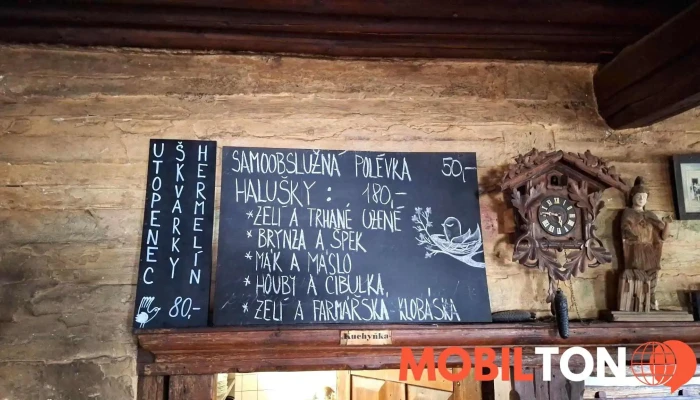 UTOPENEC
ŠKVARKY
HERMELÍN
80,-
SAMOOBSLUŽNÁ POLÉVKA 50,-
HALUŠKY: 180,-
* ZELÍ A TRHANÉ UZENÉ
* BRYNZA A ŠPEK
* MÁK A MÁSLO
* HOUBY A CIBULKA
* ZELÍ A FARMÁŘSKÁ KLOBÁSKA
Kuchyňka
MOBILTON